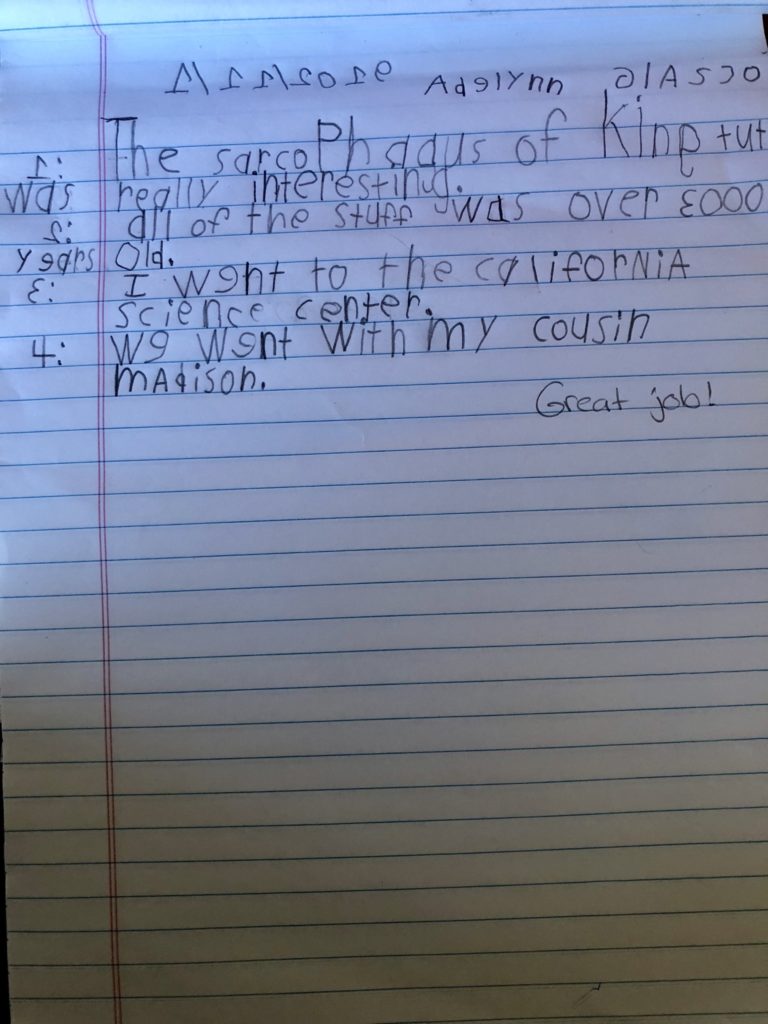 1/11/2019 Adelynn GlAsco
1: The sarcoPhagus of King tut
was really interesting.
2: all of the stuff was over 3000
years Old.
3: I went to the califorNiA
science center.
4: We went With my cousin
mAdison.
Great job!